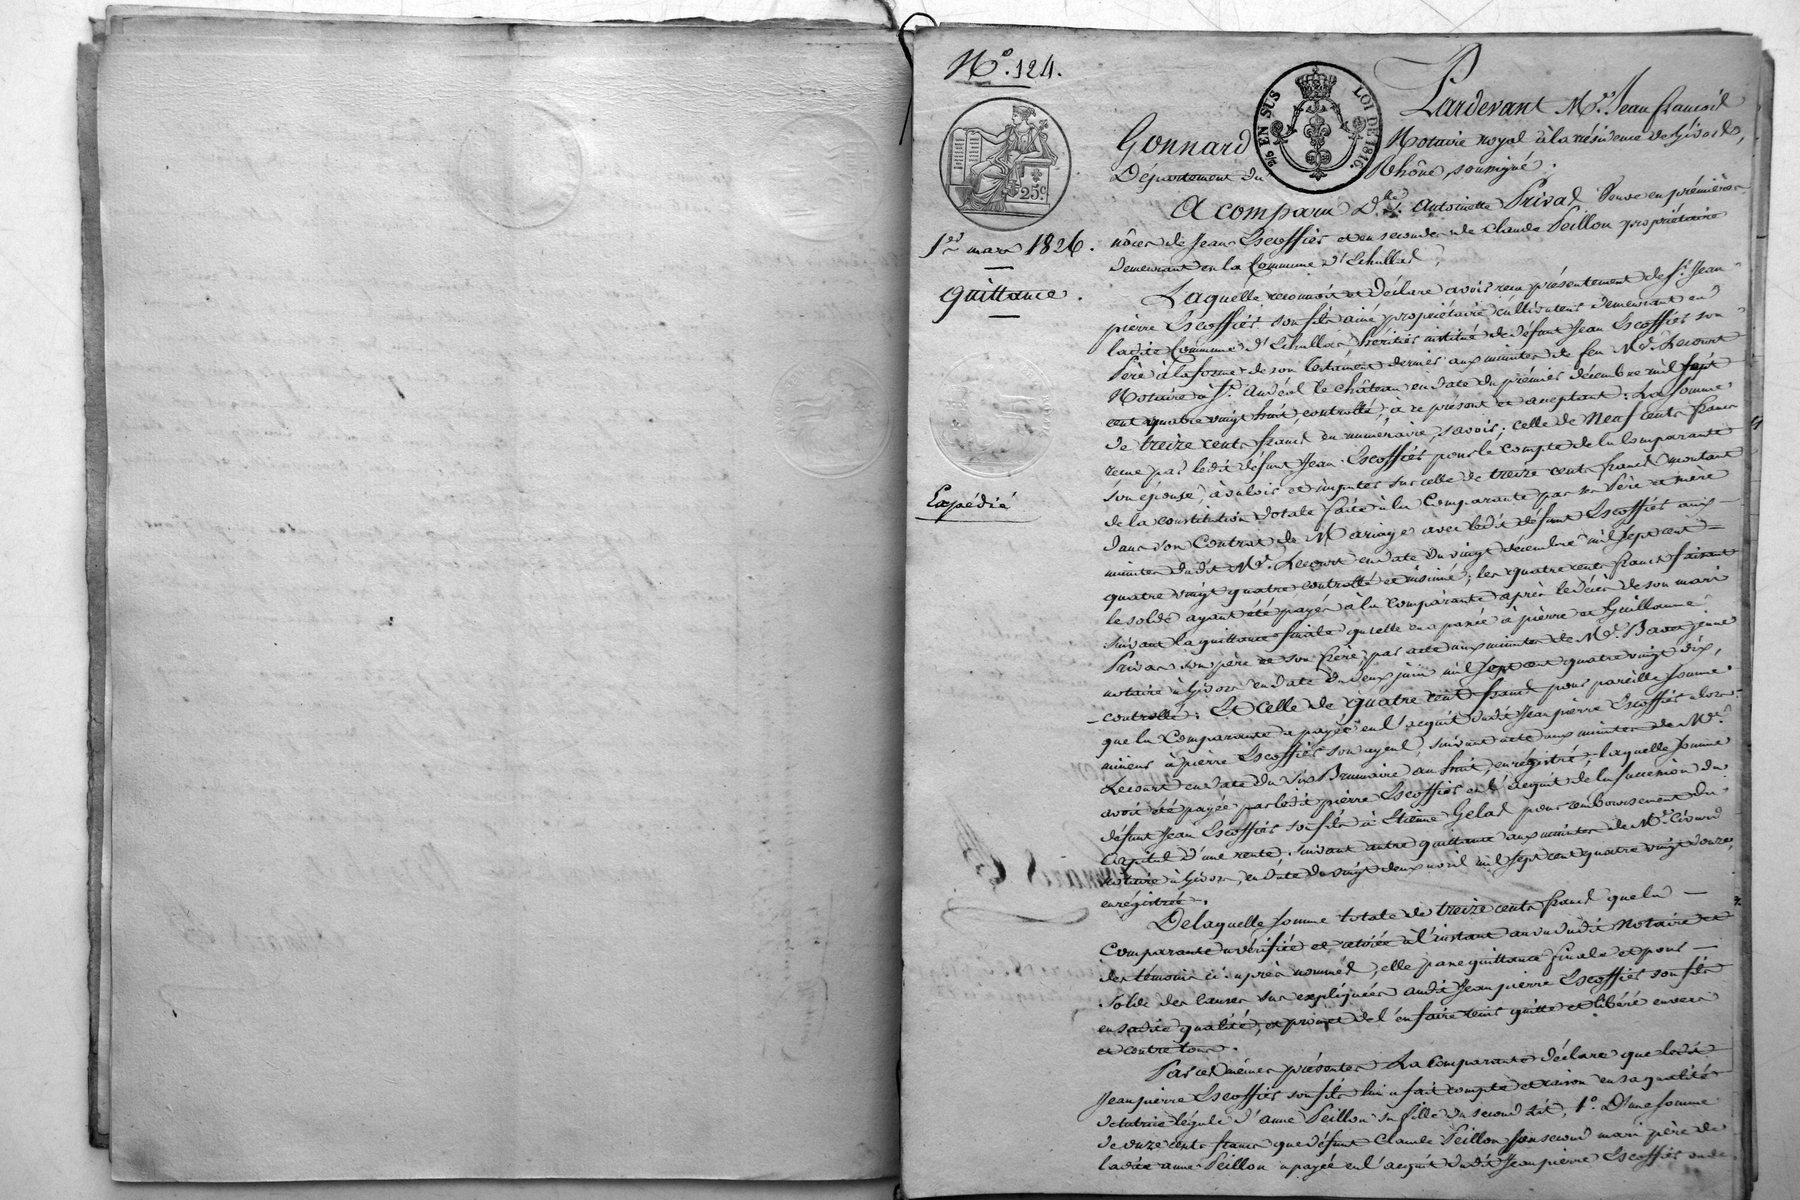 N.º 124.
2/5 EN SUS
LOI DE 1816.
25c.
1er mars 1826.
Quittance.
Expédié
Pardevant Me. Jean francois
Gonnard Notaire royal à la résidence de Givors,
Département du Rhône soussigné.
A comparu Dlle. Antoinette Privas Veuve en prémières
nôces de Jean Escoffier et en secondes de Claude Peillon propriétaire
demeurant en la Commune d'Echallas,
Laquelle reconnoit et déclare avoir recu présentement de Sr. Jean
pierre Escoffier son fils ainé propriétaire cultivateur demeurant en
ladite Commune d'Echallas héritier institué de défunt Jean Escoffier son
Père à la forme de son testament dernier aux minutes de feu Me. Lecourt
Notaire à St. andéol le château en date du prémier décembre mil sept
cent quatre vingt huit, controllé, à ce présent et acceptant: La somme
de treize cents francs en numéraire, savoir; celle de Neuf cents francs
recue par ledit défunt Jean Escoffier pour le compte de la Comparante
son épouse, à valoir et imputer sur celle de treize cents francs montant
de la constitution dotale faite à la Comparante par ses Père et mère
dans son Contrat de Mariage avec ledit défunt Escoffier aux
minutes dudit Me. Lecourt en date du vingt décembre mil sept cent
quatre vingt quatre controllé et insinué; les quatre cents francs faisant
le solde ayant été payés à la Comparante après le décès de son mari
suivant la quittance finale qu'elle en a passé à pierre et Guillaume
Privas son père et son frère, par acte aux minutes de Me. jeune
notaire à Givors en date du deux juin mil sept cent quatre vingt dix,
controllé: Et celle de quatre cents francs pour pareille somme
que la Comparante a payée en l'acquit dudit Jean pierre Escoffier alors
mineur à pierre Escoffier son ayeul, suivant acte aux minutes de Me.
Lecourt en date du six Brumaire an huit, enrégistré, laquelle somme
avoit été payée par ledit pierre Escoffier en l'acquit de la succession du
défunt Jean Escoffier son fils à Etienne Gelas pour remboursement du
Capital d'une rente, suivant autre quittance aux minutes de Me.
notaire à Givors, en date du vingt deux avril mil sept cent quatre vingt douze
enrégistrée.
De laquelle somme totale de treize cents francs que la
Comparante a vérifiée et retirée à l'instant au vu dudit Notaire et
des témoins ci après nommés, elle passe quittance finale et pour
solde des causes sus expliquées audit Jean pierre Escoffier son fils
en sadite qualité, et promet de l'en faire tenir quitte et libéré envers
et contre tous.
Par ces mêmes présentes La Comparante déclare que ledit
Jean pierre Escoffier son fils lui a fait compte et raison en sa qualité
de tutrice légale d'anne Peillon sa fille du second lit, 1.º D'une somme
de onze cents francs que défunt Claude Peillon son second mari père de
ladite anne Peillon a payée en l'acquit dudit Jean pierre Escoffier